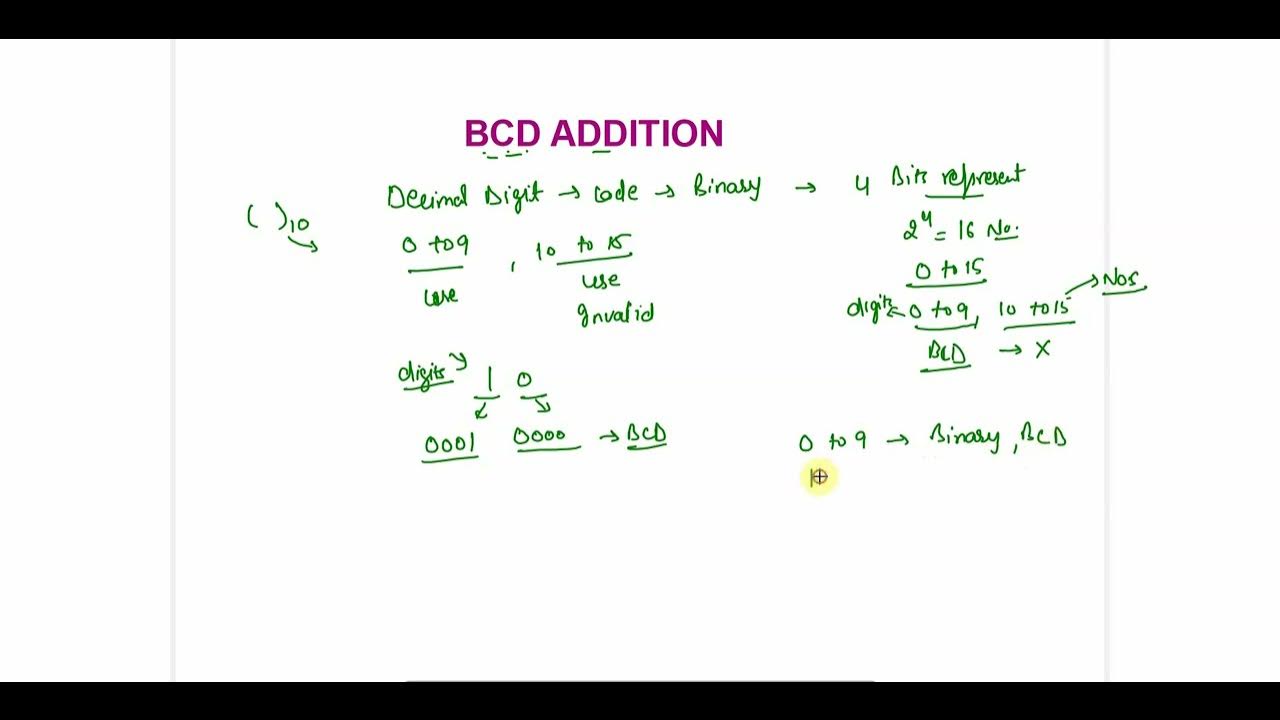 BCD ADDITION
Decimal Digit → code → Binary → 4 Bits represent
( )10
2^4 = 16 No.
0 to 9 , 10 to 15
0 to 15
use use
Invalid
Nos
digits ← 0 to 9, 10 to 15
BCD → X
digits
1 0
0001 0000 → BCD
0 to 9 → Binary, BCD